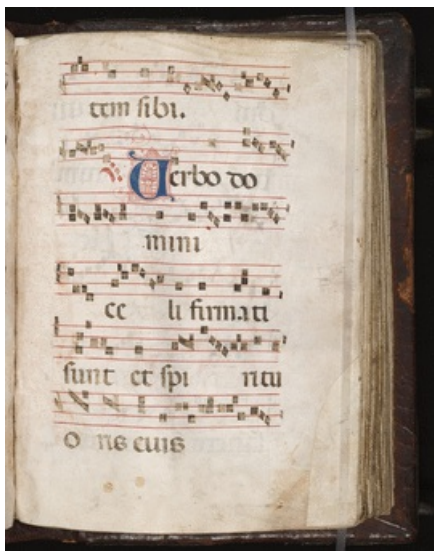 tem sibi.
Verbo do
mini
ce li firmati
sunt et spi ritu
o ris eius